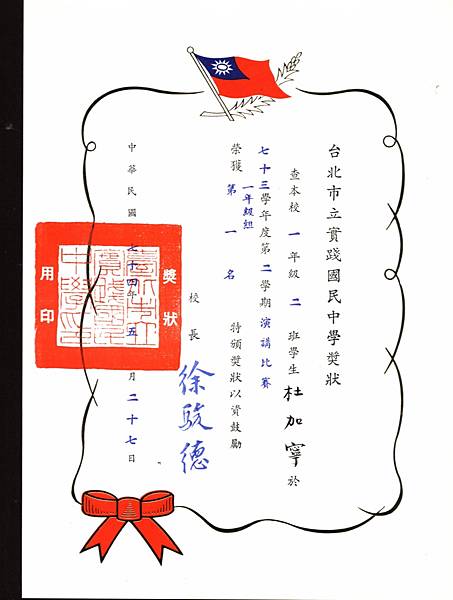 台北市立實踐國民中學奬狀
查本校一年級二班學生杜加寧於
七十三學年度第二學期演講比賽
一年級組
榮獲第一名特頒奬狀以資鼓勵
校長徐駿德
中華民國七十四年五月二十七日
奬狀
臺北市立
實踐國民
中學印
用印